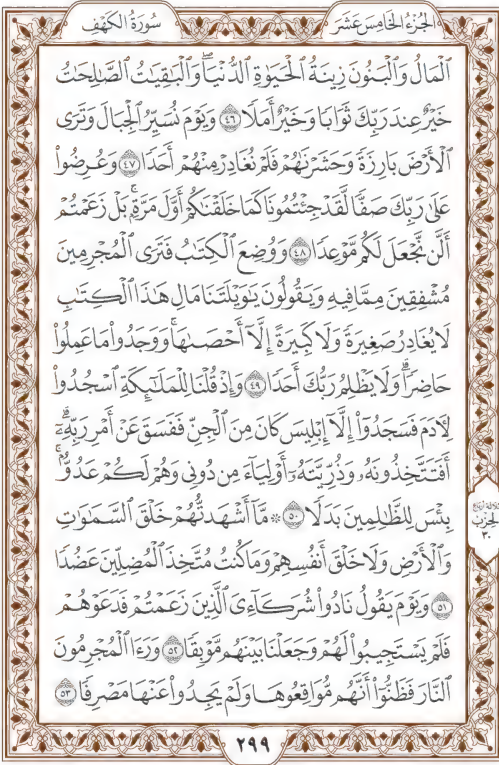 الجُزْءُ الخَامِسَ عَشَرَ سُورَةُ الكَهْفِ
ٱلْمَالُ وَٱلْبَنُونَ زِينَةُ ٱلْحَيَوٰةِ ٱلدُّنْيَاۖ وَٱلْبَٰقِيَٰتُ ٱلصَّٰلِحَٰتُ
خَيْرٌ عِندَ رَبِّكَ ثَوَابًا وَخَيْرٌ أَمَلًا ٤٦ وَيَوْمَ نُسَيِّرُ ٱلْجِبَالَ وَتَرَى
ٱلْأَرْضَ بَارِزَةً وَحَشَرْنَٰهُمْ فَلَمْ نُغَادِرْ مِنْهُمْ أَحَدًا ٤٧ وَعُرِضُوا۟
عَلَىٰ رَبِّكَ صَفًّا لَّقَدْ جِئْتُمُونَا كَمَا خَلَقْنَٰكُمْ أَوَّلَ مَرَّةٍۭۚ بَلْ زَعَمْتُمْ
أَلَّن نَّجْعَلَ لَكُم مَّوْعِدًا ٤٨ وَوُضِعَ ٱلْكِتَٰبُ فَتَرَى ٱلْمُجْرِمِينَ
مُشْفِقِينَ مِمَّا فِيهِ وَيَقُولُونَ يَٰوَيْلَتَنَا مَالِ هَٰذَا ٱلْكِتَٰبِ
لَا يُغَادِرُ صَغِيرَةً وَلَا كَبِيرَةً إِلَّآ أَحْصَىٰهَاۚ وَوَجَدُوا۟ مَا عَمِلُوا۟
حَاضِرًاۗ وَلَا يَظْلِمُ رَبُّكَ أَحَدًا ٤٩ وَإِذْ قُلْنَا لِلْمَلَٰٓئِكَةِ ٱسْجُدُوا۟
لِءَادَمَ فَسَجَدُوٓا۟ إِلَّآ إِبْلِيسَ كَانَ مِنَ ٱلْجِنِّ فَفَسَقَ عَنْ أَمْرِ رَبِّهِۦٓۗ
أَفَتَتَّخِذُونَهُۥ وَذُرِّيَّتَهُۥٓ أَوْلِيَآءَ مِن دُونِى وَهُمْ لَكُمْ عَدُوٌّۢۚ
بِئْسَ لِلظَّٰلِمِينَ بَدَلًا ٥٠ ۞ مَّآ أَشْهَدتُّهُمْ خَلْقَ ٱلسَّمَٰوَٰتِ
وَٱلْأَرْضِ وَلَا خَلْقَ أَنفُسِهِمْ وَمَا كُنتُ مُتَّخِذَ ٱلْمُضِلِّينَ عَضُدًا
٥١ وَيَوْمَ يَقُولُ نَادُوا۟ شُرَكَآءِىَ ٱلَّذِينَ زَعَمْتُمْ فَدَعَوْهُمْ
فَلَمْ يَسْتَجِيبُوا۟ لَهُمْ وَجَعَلْنَا بَيْنَهُم مَّوْبِقًا ٥٢ وَرَءَا ٱلْمُجْرِمُونَ
ٱلنَّارَ فَظَنُّوٓا۟ أَنَّهُم مُّوَاقِعُوهَا وَلَمْ يَجِدُوا۟ عَنْهَا مَصْرِفًا ٥٣
ثلاثة أرباع
الحزب
٣٠
٢٩٩